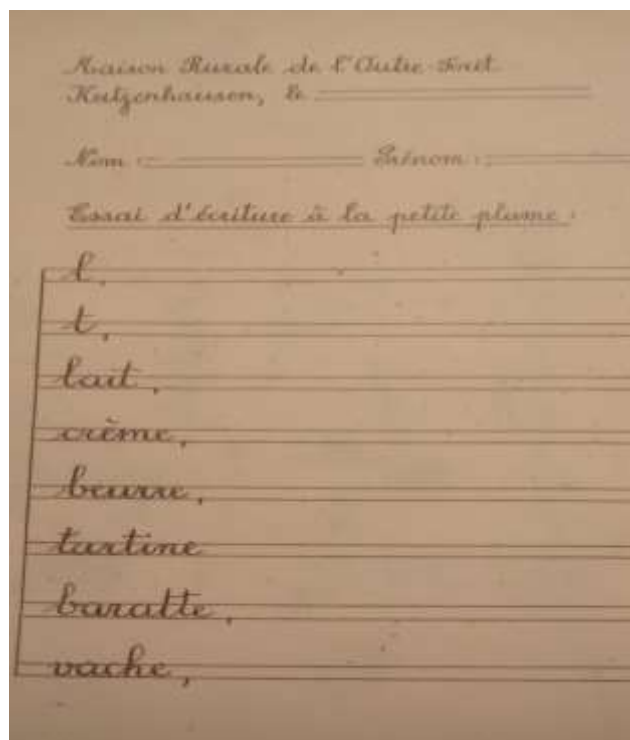 Maison Rurale de l'Outre-Forêt
Kutzenhausen, le
Nom : Prénom :
Essai d'écriture à la petite plume :
l,
t,
lait,
crème,
beurre,
tartine
baratte,
vache,